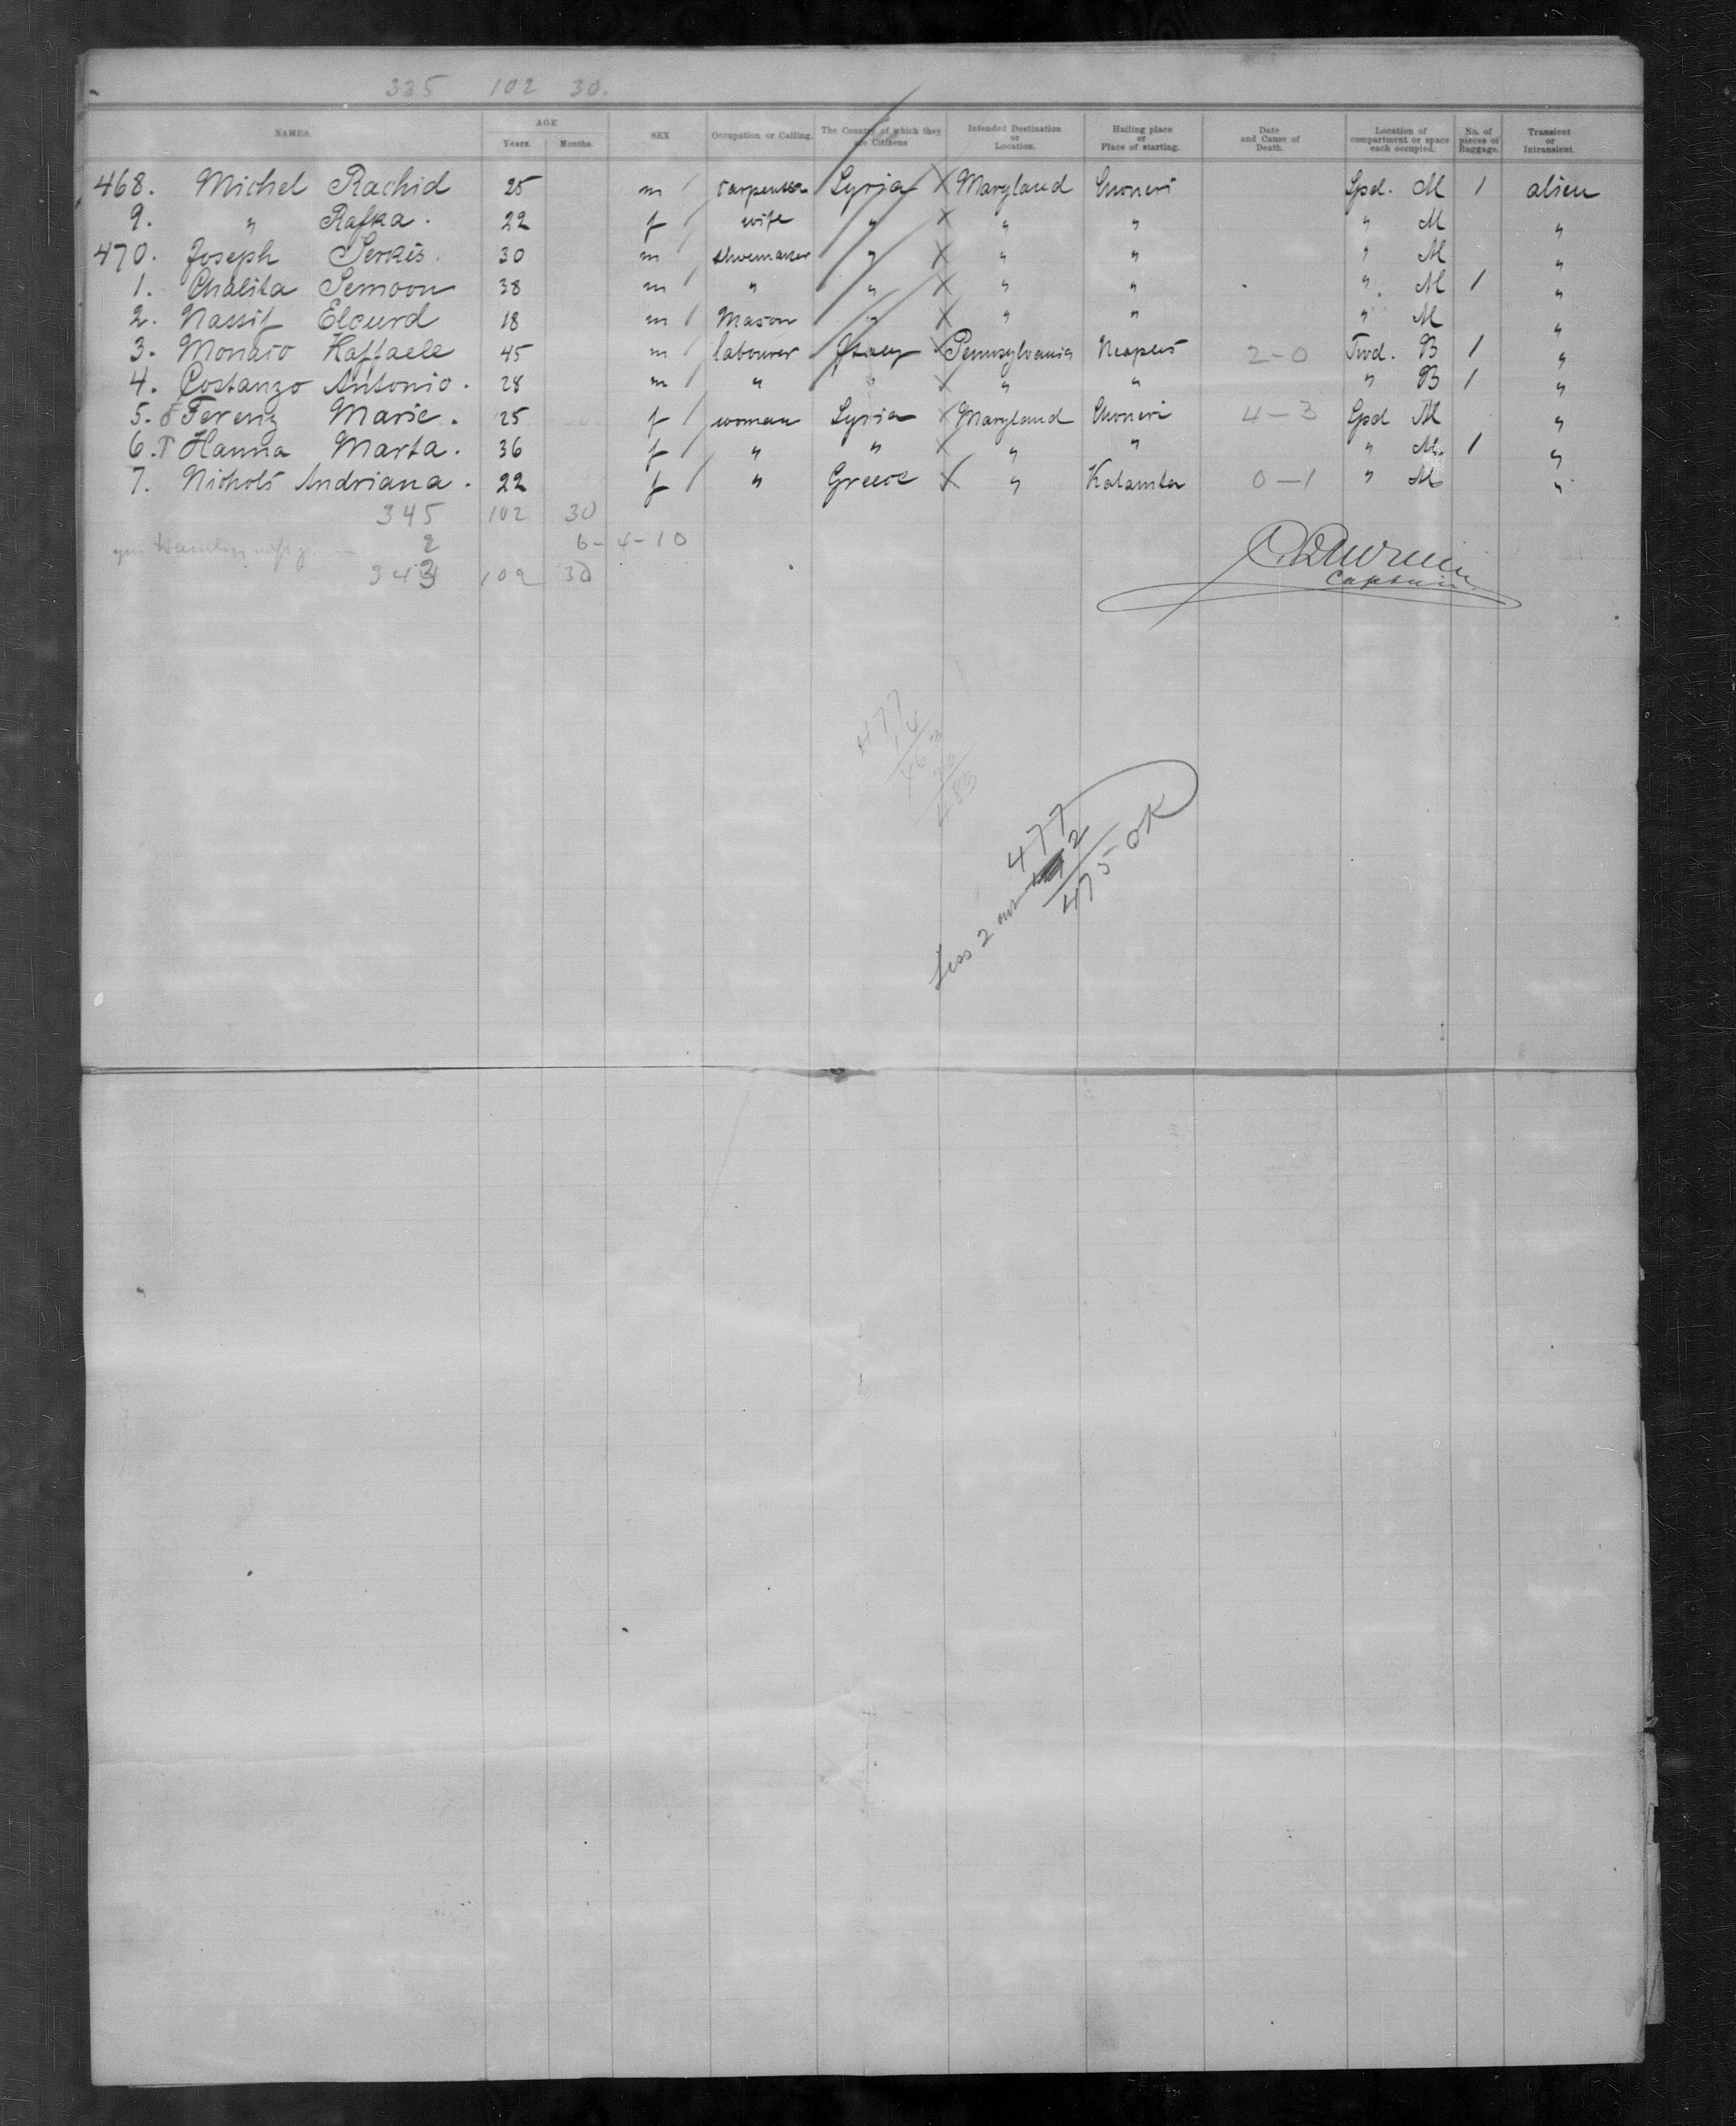 335 102 30.
NAMES. AGE Years. Months. SEX Occupation or Calling. The Country of which they are Citizens Intended Destination or Location. Hailing place or Place of starting. Date and Cause of Death. Location of compartment or space each occupied. No. of pieces of Baggage. Transient or Intransient.
468. Michel Rachid 25 m / carpenter Syria X Maryland Spd. M 1 alien
9. " Rafka. 22 f / wife " X " " " M "
470. Joseph Serkis. 30 m / shoemaker " X " " " M "
1. Chalita Semoon 38 m / " " X " " " M 1 "
2. Nassif Elcurd 18 m / Mason " X " " " M "
3. Monaco Raffaele 45 m / labourer Italy X Pennsylvania Neapels 2-0 Twd. B 1 "
4. Costanzo Antonio. 28 m / " " X " " " B 1 "
5. Ferenz Marie. 25 f / woman Syria X Maryland 4-3 Spd M "
6. Hanna Marta. 36 f / " " X " " " M. 1 "
7. Nichols Andriana. 22 f / " Greece X " Kalamta 0-1 " M "
345 102 30
2 6-4-10
343 102 30
Captain
477
14
463
20
483
477
Less 2 2
475 OK